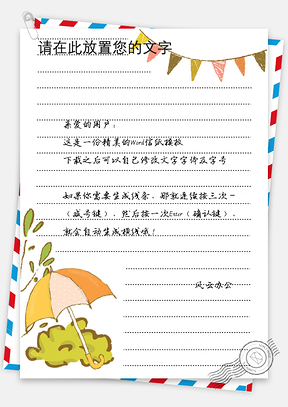 请在此放置您的文字
亲爱的用户：
这是一份精美的Word信纸模板
下载之后可以自己修改文字字体及字号
如果你需要生成线条，那就连续按三次－
（减号键），然后按一次Enter（确认键），
就会自动生成横线哦！
风云办公